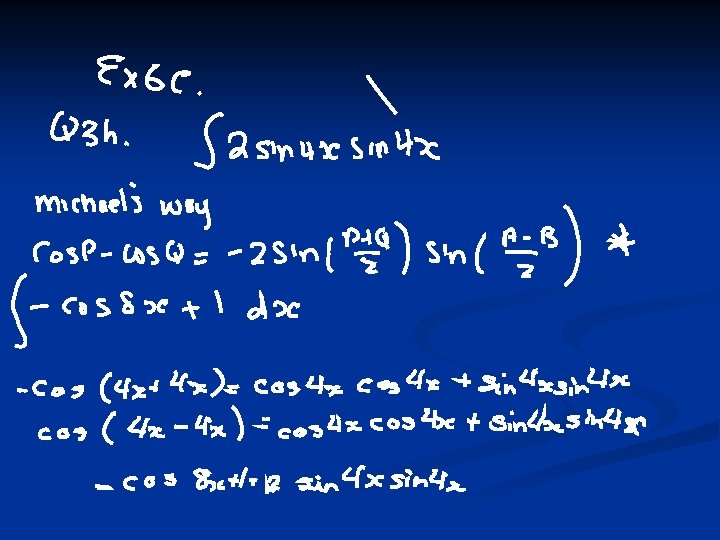 Ex6C.
Q3h. ∫2 sin4x sin4x
michael's way
cosP - cosQ = -2 sin(P+Q/2) sin(A-B/2) *
∫ - cos 8x + 1 dx
-cos (4x + 4x) = cos4x cos4x + sin4x sin4x
cos (4x - 4x) = cos4x cos4x + sin4x sin4x
- cos 8x + 1 = 2 sin4x sin4x